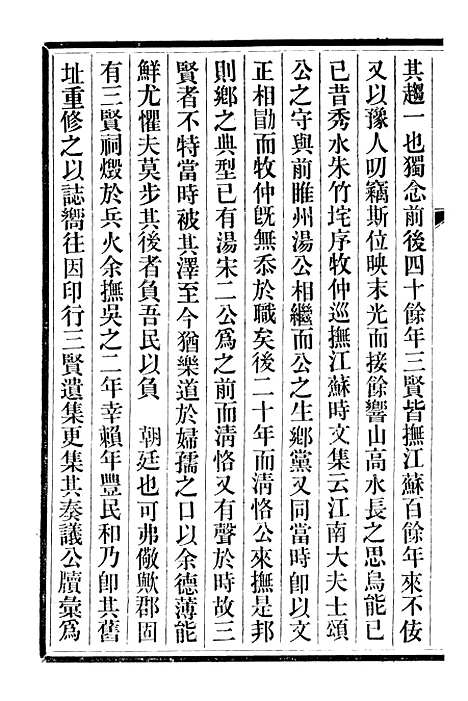 其趨一也獨念前後四十餘年三賢皆撫江蘇百餘年來不佞
又以豫人叨竊斯位映末光而接餘響山高水長之思烏能已
已昔秀水朱竹垞序牧仲巡撫江蘇時文集云江南大夫士頌
公之守與前睢州湯公相繼而公之生鄉黨又同當時卽以文
正相勖而牧仲旣無忝於職矣後二十年而淸恪公來撫是邦
則鄉之典型已有湯宋二公爲之前而淸恪又有聲於時故三
賢者不特當時被其澤至今猶樂道於婦孺之口以余德薄能
鮮尤懼夫莫步其後者負吾民以負　朝廷也可弗儆歟郡固
有三賢祠燬於兵火余撫吳之二年幸賴年豐民和乃卽其舊
址重修之以誌嚮往因印行三賢遺集更集其奏議公牘彙爲